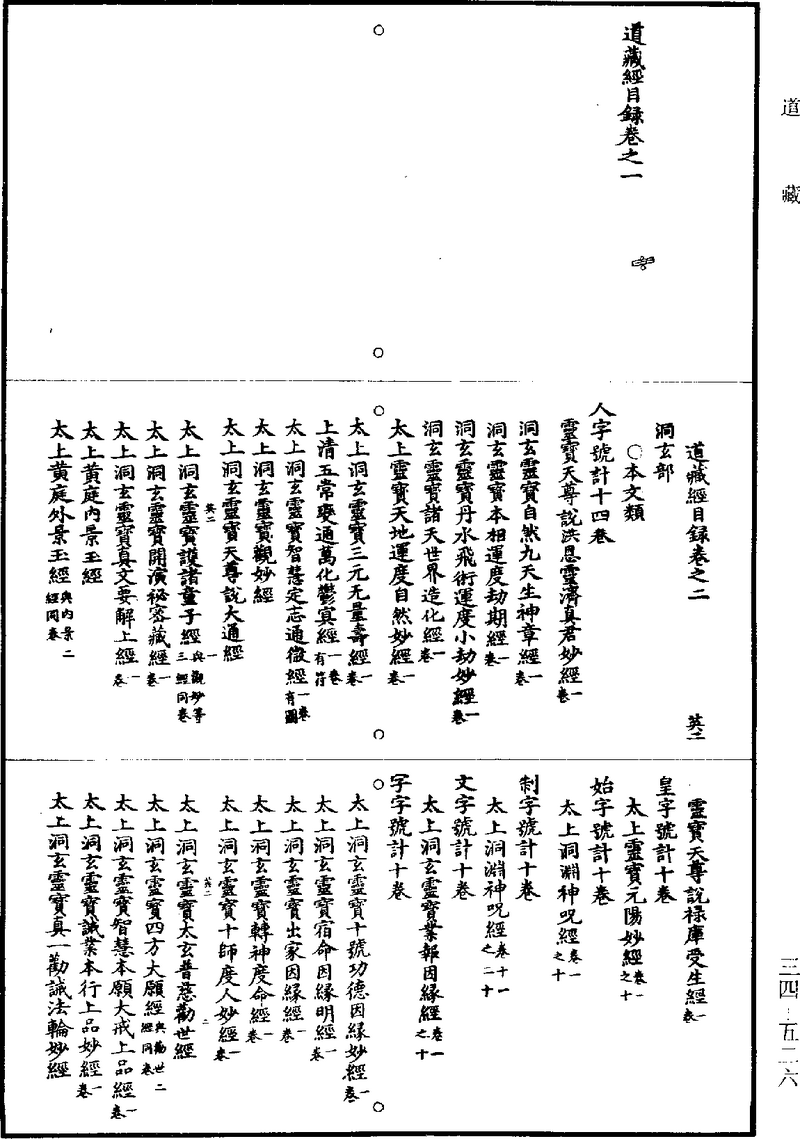 道藏
三四－五二六
道藏經目録卷之一
道藏經目録卷之二 英二
洞玄部
○本文類
人字號計十四卷
靈寶天尊說洪恩靈濟真君妙經一卷
洞玄靈寶自然九天生神章經一卷
洞玄靈寶本相運度劫期經一卷
洞玄靈寶丹水飛術運度小劫妙經一卷
洞玄靈寶諸天世界造化經一卷
太上靈寶天地運度自然妙經一卷
太上洞玄靈寶三元无量壽經一卷
上清五常變通萬化鬱冥經一卷有符
太上洞玄靈寶智慧定志通微經一卷有圖
太上洞玄靈寶觀妙經
太上洞玄靈寶天尊說大通經
太上洞玄靈寶護諸童子經與觀妙等三經同卷
英二 一
太上洞玄靈寶開演祕密藏經一卷
太上洞玄靈寶真文要解上經一卷
太上黃庭內景玉經
太上黃庭外景玉經與內景二經同卷
靈寶天尊說祿庫受生經一卷
皇字號計十卷
太上靈寶元陽妙經卷一之十
始字號計十卷
太上洞淵神呪經卷一之十
制字號計十卷
太上洞淵神呪經卷十一之二十
文字號計十卷
太上洞玄靈寶業報因緣經卷一之十
字字號計十卷
太上洞玄靈寶十號功德因緣妙經一卷
太上洞玄靈寶宿命因緣明經一卷
太上洞玄靈寶出家因緣經一卷
太上洞玄靈寶轉神度命經一卷
太上洞玄靈寶十師度人妙經一卷
英二 二
太上洞玄靈寶太玄普慈勸世經
太上洞玄靈寶四方大願經與勸世二經同卷
太上洞玄靈寶智慧本願大戒上品經一卷
太上洞玄靈寶誡業本行上品妙經一卷
太上洞玄靈寶真一勸誡法輪妙經